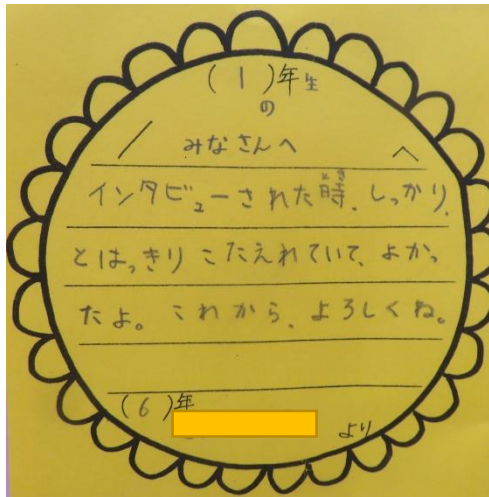 (1)年生
の
/ みなさんへ へ
インタビューされた時、しっかり、
とはっきりこたえれていて、よかっ
たよ。これから、よろしくね。
(6)年
より